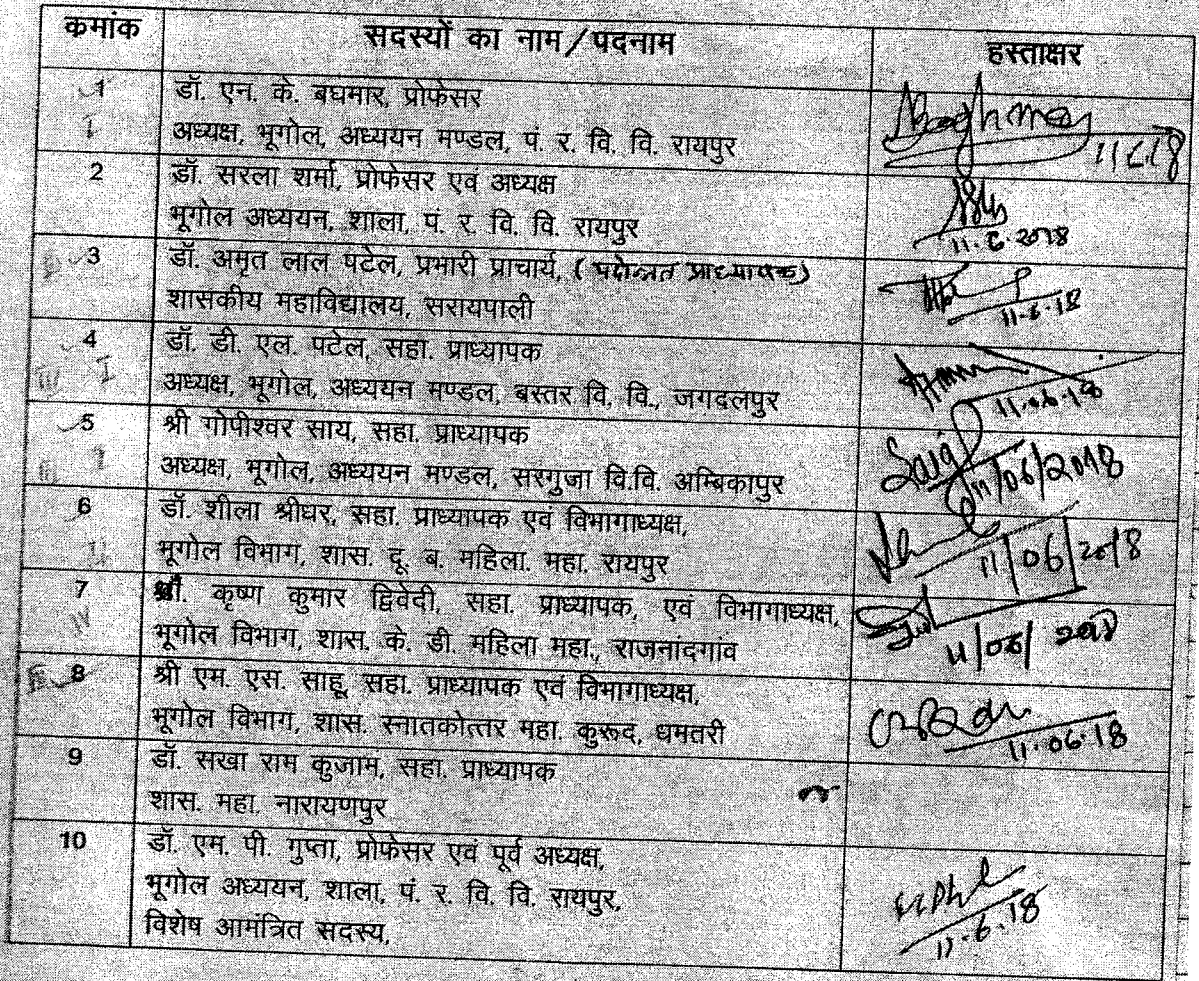 कमांक सदस्यों का नाम / पदनाम हस्ताक्षर
1 डॉ. एन. के. बघमार, प्रोफेसर
I अध्यक्ष, भूगोल, अध्ययन मण्डल, पं. र. वि. वि. रायपुर
2 डॉ. सरला शर्मा, प्रोफेसर एवं अध्यक्ष
भूगोल अध्ययन, शाला, पं. र. वि. वि. रायपुर
11.6.2018
3 डॉ. अमृत लाल पटेल, प्रभारी प्राचार्य, (पदोन्नत प्राध्यापक)
शासकीय महाविद्यालय, सरायपाली
11.6.18
4 डॉ. डी. एल. पटेल, सहा. प्राध्यापक
III I अध्यक्ष, भूगोल, अध्ययन मण्डल, बस्तर वि. वि., जगदलपुर
11.06.18
5 श्री गोपीश्वर साय, सहा. प्राध्यापक
III I अध्यक्ष, भूगोल, अध्ययन मण्डल, सरगुजा वि.वि. अम्बिकापुर
11/06/2018
6 डॉ. शीला श्रीधर, सहा. प्राध्यापक एवं विभागाध्यक्ष,
भूगोल विभाग, शास. दू. ब. महिला. महा. रायपुर
11/06/2018
7 कृष्ण कुमार द्विवेदी, सहा. प्राध्यापक, एवं विभागाध्यक्ष,
IV भूगोल विभाग, शास. के. डी. महिला महा., राजनांदगांव
11/06/2018
8 श्री एम. एस. साहू, सहा. प्राध्यापक एवं विभागाध्यक्ष,
भूगोल विभाग, शास. स्नातकोत्तर महा. कुरूद, धमतरी
11.06.18
9 डॉ. सखा राम कुजाम, सहा. प्राध्यापक
शास. महा. नारायणपुर
10 डॉ. एम. पी. गुप्ता, प्रोफेसर एवं पूर्व अध्यक्ष,
भूगोल अध्ययन, शाला, पं. र. वि. वि. रायपुर,
विशेष आमंत्रित सदस्य,
11.6.18